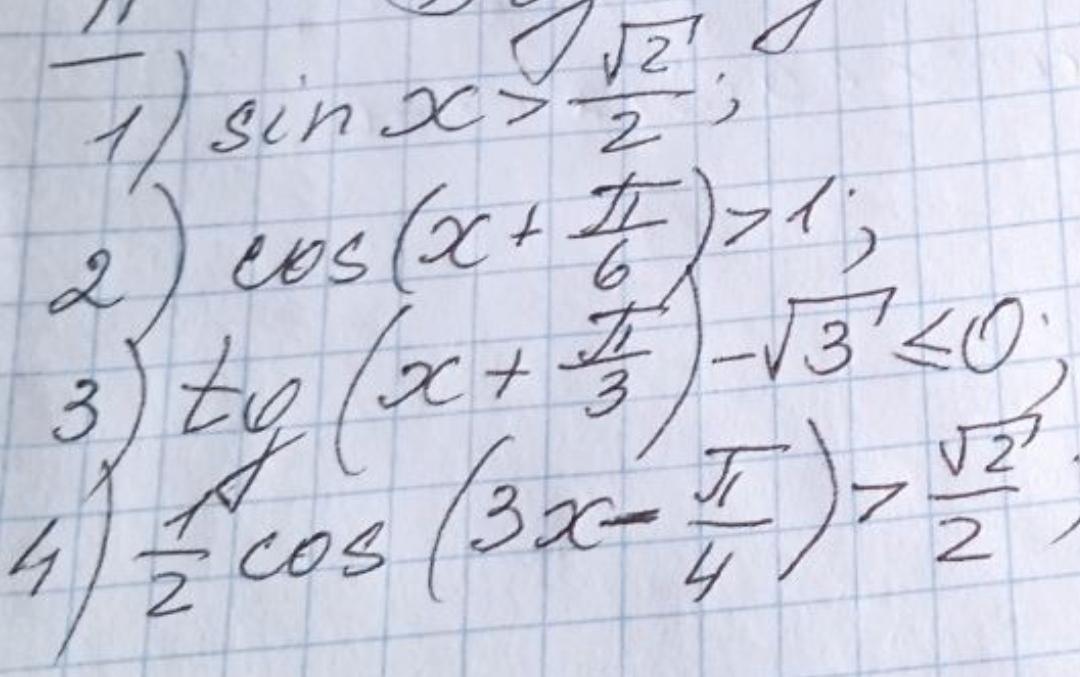 1) sin x > √2/2;
2) cos(x + π/6) > 1;
3) tg(x + π/3) - √3 ≤ 0;
4) 1/2 cos(3x - π/4) > √2/2;